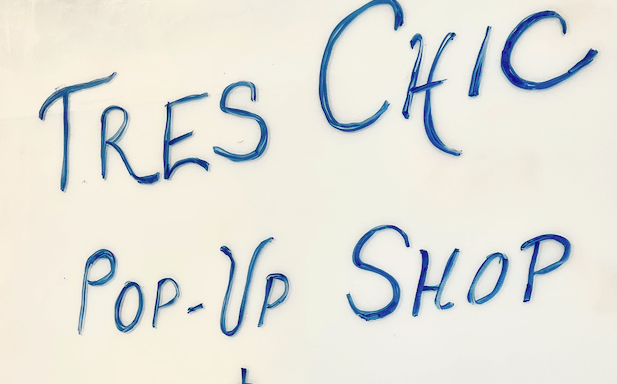 TRES CHIC
POP-UP SHOP